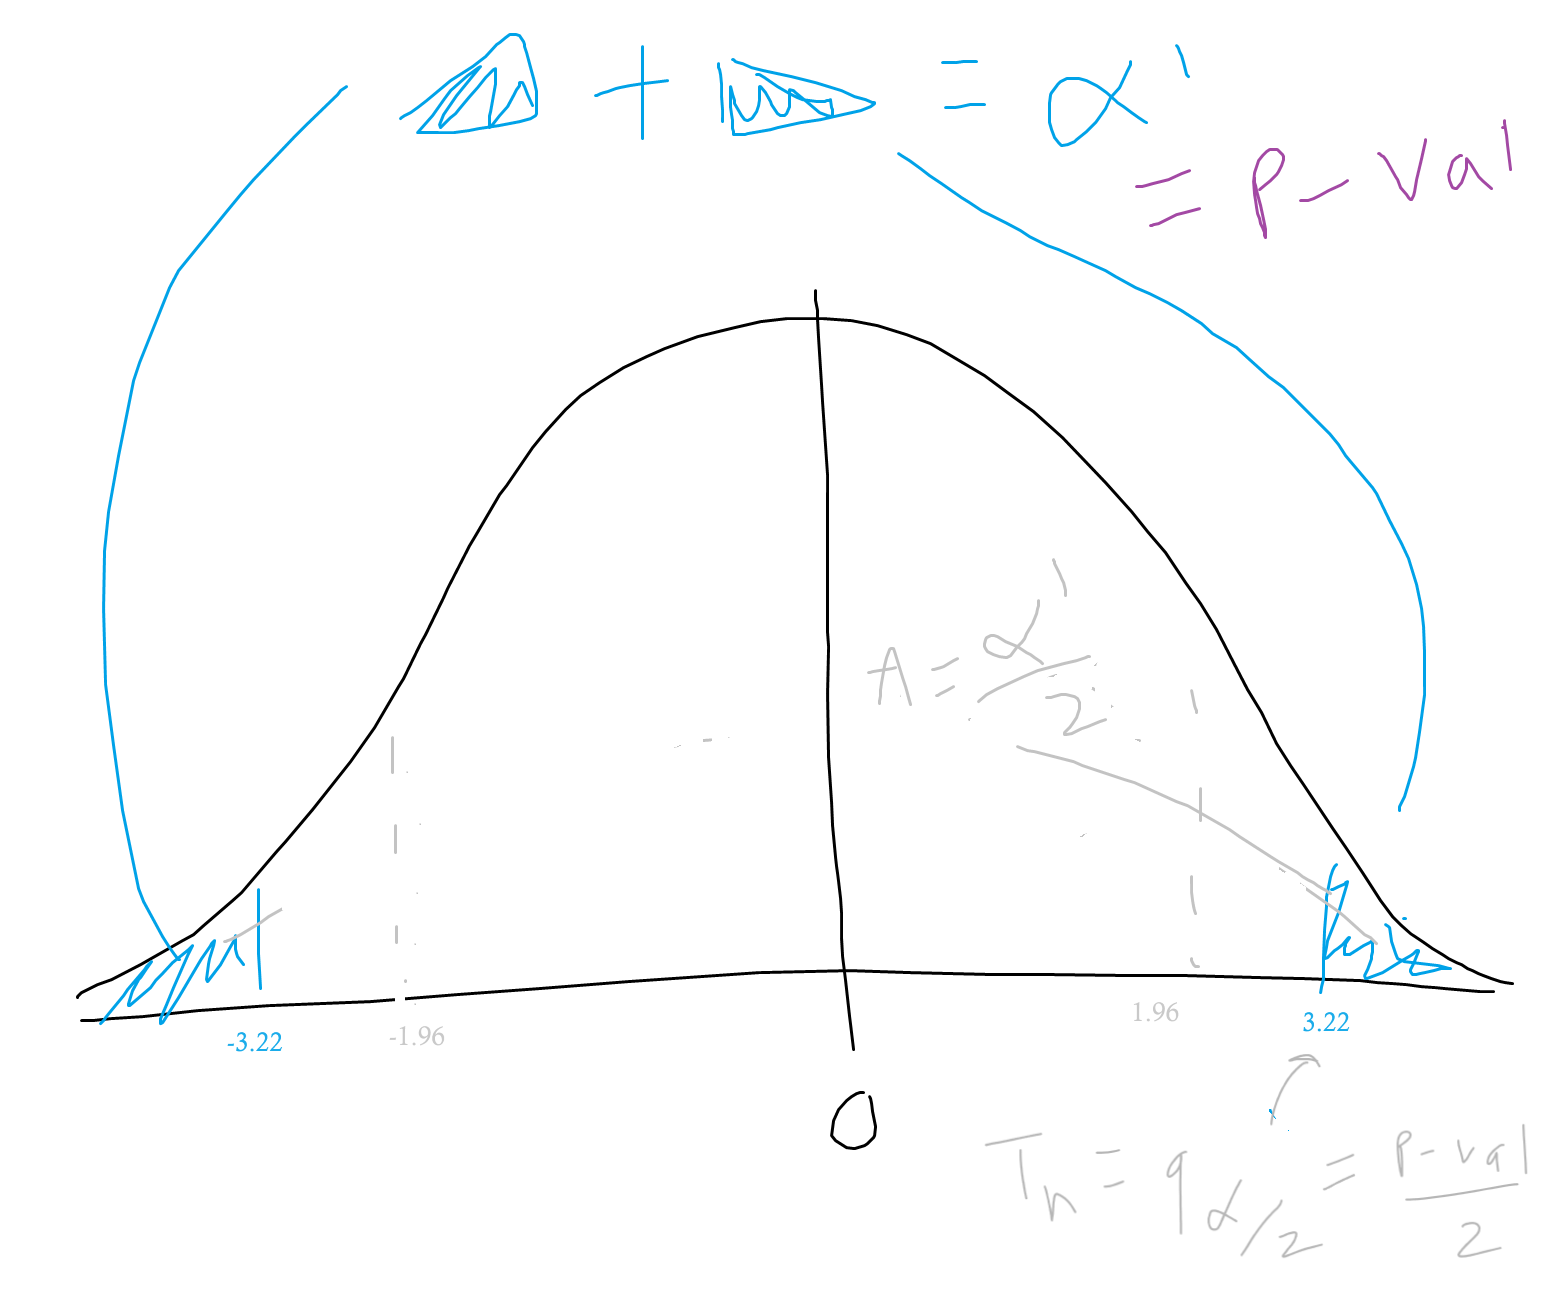 + = α'
= p-val
A = α'/2
-3.22 -1.96 1.96 3.22
0
Tn = qα/2 = p-val/2